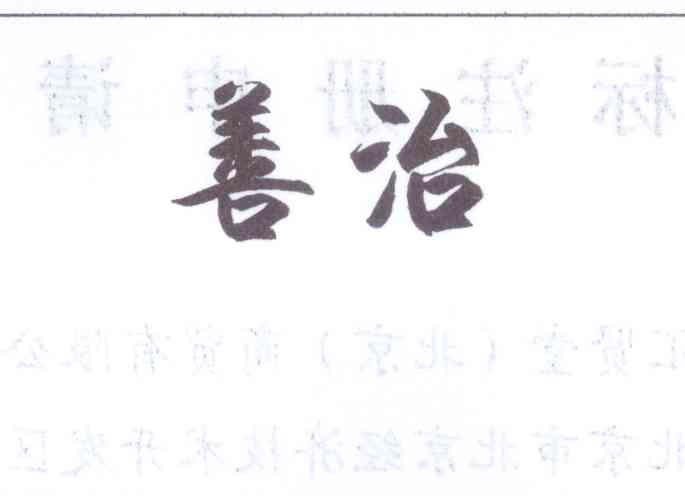 标注册申请
善治
汇贤堂（北京）商贸有限公
北京市北京经济技术开发区